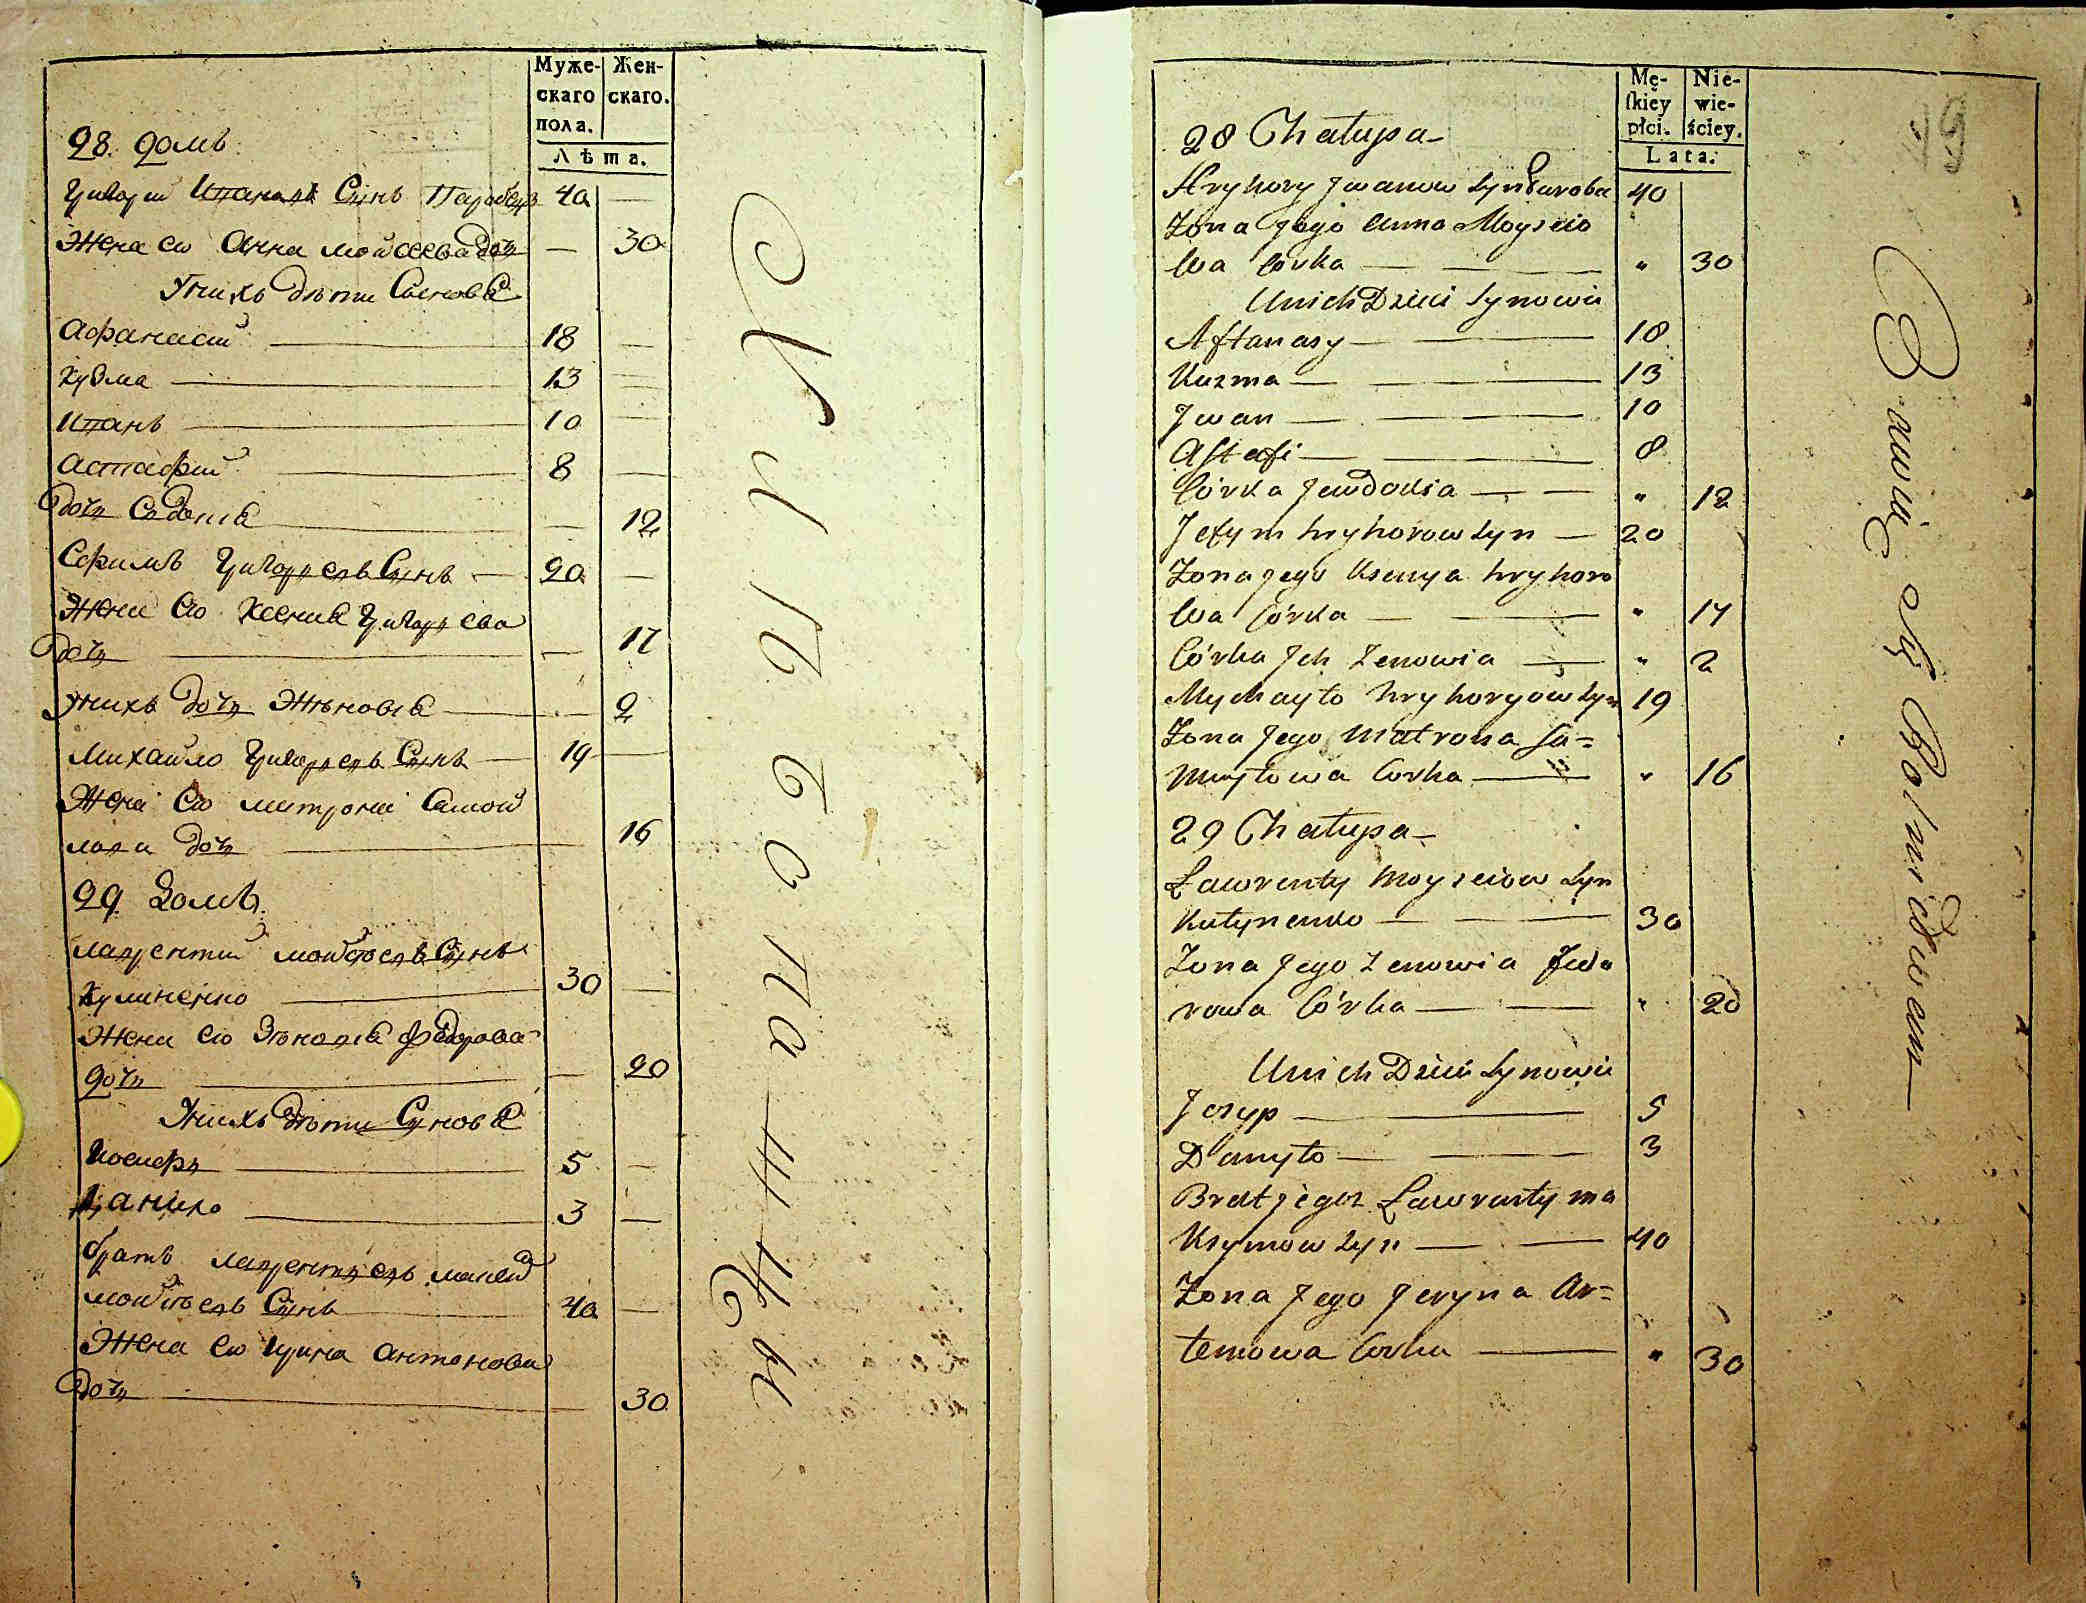 Муже-
скаго
пола.
Жен-
скаго.
Лѣта.
28. домъ.
Григорій Ивановъ Сынъ 40 —
Жена ею Анна мойсеева дочь — 30
Унихъ дѣти Сыновѣ
Афанасій 18 —
Кузма 13 —
Иванъ 10 —
Астафій 8 —
дочь — 12
Ефимъ Григорьевъ Сынъ 20 —
Жена ею Ксенія Григорьева
дочь — 17
Унихъ дочь Зѣновія — 2
Михайло Григорьевъ Сынъ 19 —
Жена ею матрона Самой
лова дочь 16
29. Домъ.
Лаврентій мойсѣевъ Сынъ
Кулиненко 30 —
Жена ею Зѣновія федорова
дочь — 20
Унихъ дѣти Сыновѣ
Иосифъ 5 —
Данило 3 —
братъ Лаврентьевъ
мойсѣевъ Сынъ 40 —
Жена ею Ирина Антонова
дочь 30
Крыпостны
Mę-
ſkiéy
płci.
Nie-
wie-
ściey.
Lata.
19
28 Chałupa
Hryhory Jwanow Syn 40
Żona Jego Anna Moyseio
wa Córka — " 30
Unich Dzieci Synowie
Aftanasy — 18
Kuzma — 13
Jwan — 10
Astafi — 8
Córka Jewdokia — " 12
Jefym hryhorow Syn — 20
Żona jego Ksenya hryhoro
wa Córka — " 17
Córka Jch Zenowia — " 2
Mychayło hryhoryow Syn 19
Żona Jego Matrona Sa=
muyłowa Corka — " 16
29 Chałupa
Ławrenty Moyseiow Syn
Kułynenko — 30
Żona Jego Zenowia Fedo
rowa Córka — " 20
Unich Dzieci Synowie
Josyp — 5
Danyło — 3
Brat jegoż Ławrenty ma
ksymow Syn — 40
Żona Jego Jeryna Ar=
temowa Corka — " 30
Bawią się Rolnictwem